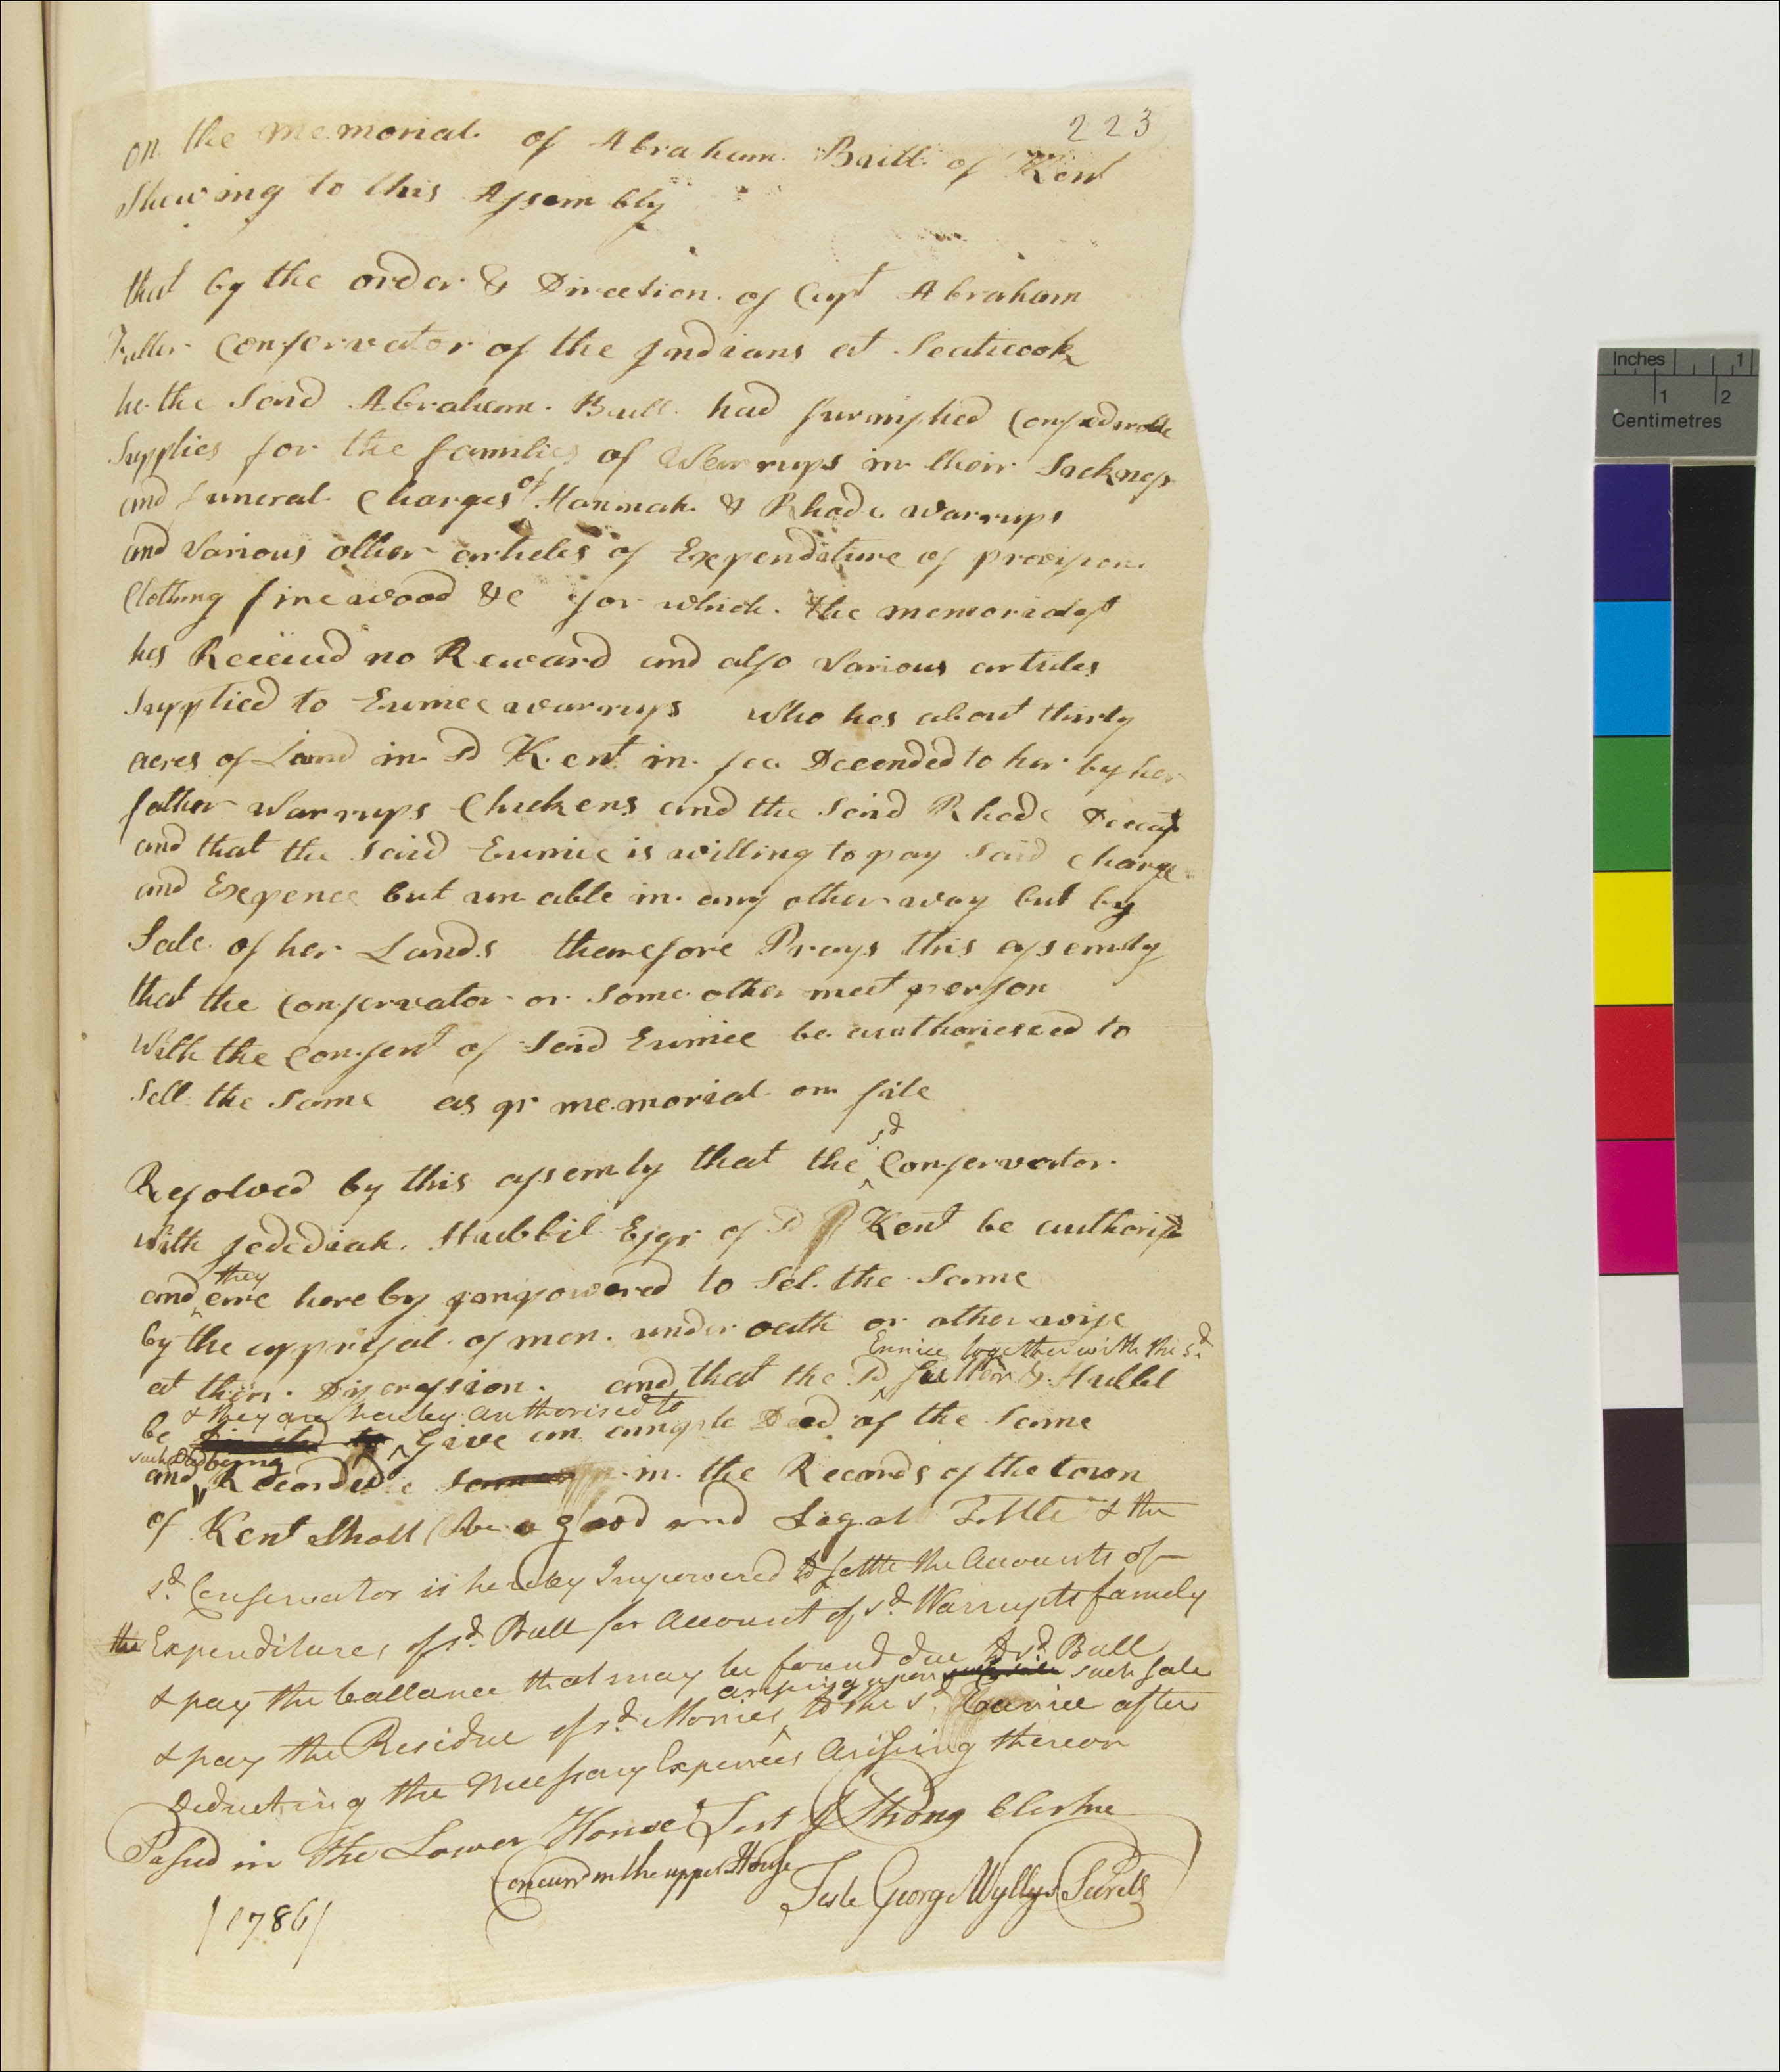 223
on the memorial of Abraham Bull of Kent
Shewing to this Assembly
that by the order & Direction of Capt Abraham
Fuller Conservator of the Indians at Scaticook
he the said Abraham Bull had furnished Considrable
Supplies for the families of Warrups in their Sickness
and funeral Charges of Hannah & Rhode warrups
and various other articles of Expendature of provision
Clothing fire wood &c for which the memorialist
has Received no Reward and also various articles
Supplied to Eunice warrups who has about thirty
acres of Land in sd Kent in fee Decended to her by her
father Warrups Chickens and the said Rhode Deceast
and that the said Eunice is willing to pay said charge
and Expence but un able in any other way but by
Sale of her Lands therefore Prays this assembly
that the Conservator or some other meet person
With the Consent of said Eunice be authoriesed to
Sell the same as pr memorial on file
sd
Resolved by this assembly that the Conservator
with Jedediah Hubbil Esqr of sd Kent be authorise
they
and are hereby impowered to Sel the same
by the apprisal of men under oath or other wise
Eunice together with the sd
at their Discression and that the sd Fuller & Hubbel
& they are hereby authorised to
be Give an ample Deed of the same
such Deed being
and Recorded in the Records of the town
of Kent Shall be a good and Legal Tittle & the
sd Conservator is hereby Impowered to settle the Accounts of
the Expenditures of sd Bull for account of sd Warrups family
& pay the ballance that may be found due to sd Bull
arising upon such sale such sale
& pay the Residue of sd Monies to the sd Eunice after
Deducting the Necessary Expences Arising thereon
Passed in the Lower House Test J Strong Clerk
Concurrd in the upper House
Teste George Wyllys Secrety
/1786/
Inches 1
1 2
Centimetres